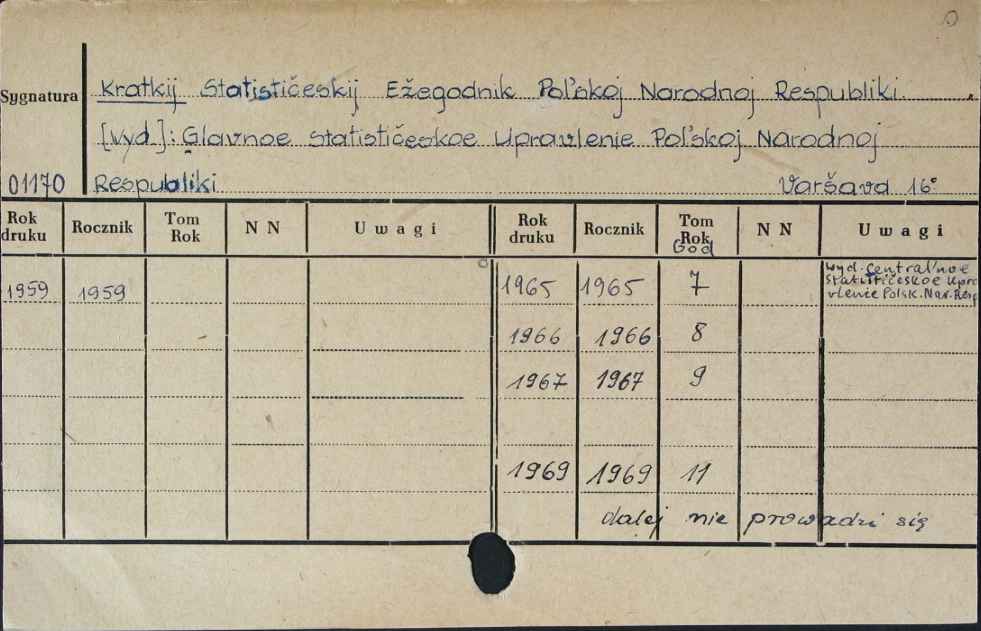 Kratkij Statističeskij Ežegodnik Pol'skoj Narodnoj Respubliki.
Sygnatura
[Wyd.]: Glavnoe statističeskoe Upravlenie Pol'skoj Narodnoj
01170 Respubliki Varšava 16°
Rok druku Rocznik Tom Rok N N Uwagi Rok druku Rocznik Tom Rok God N N Uwagi
1959 1959 1965 1965 7 Wyd. Central'noe
Statističeskoe Upra
vlenie Polsk. Nar. Resp
1966 1966 8
1967 1967 9
1969 1969 11
dalej nie prowadzi się